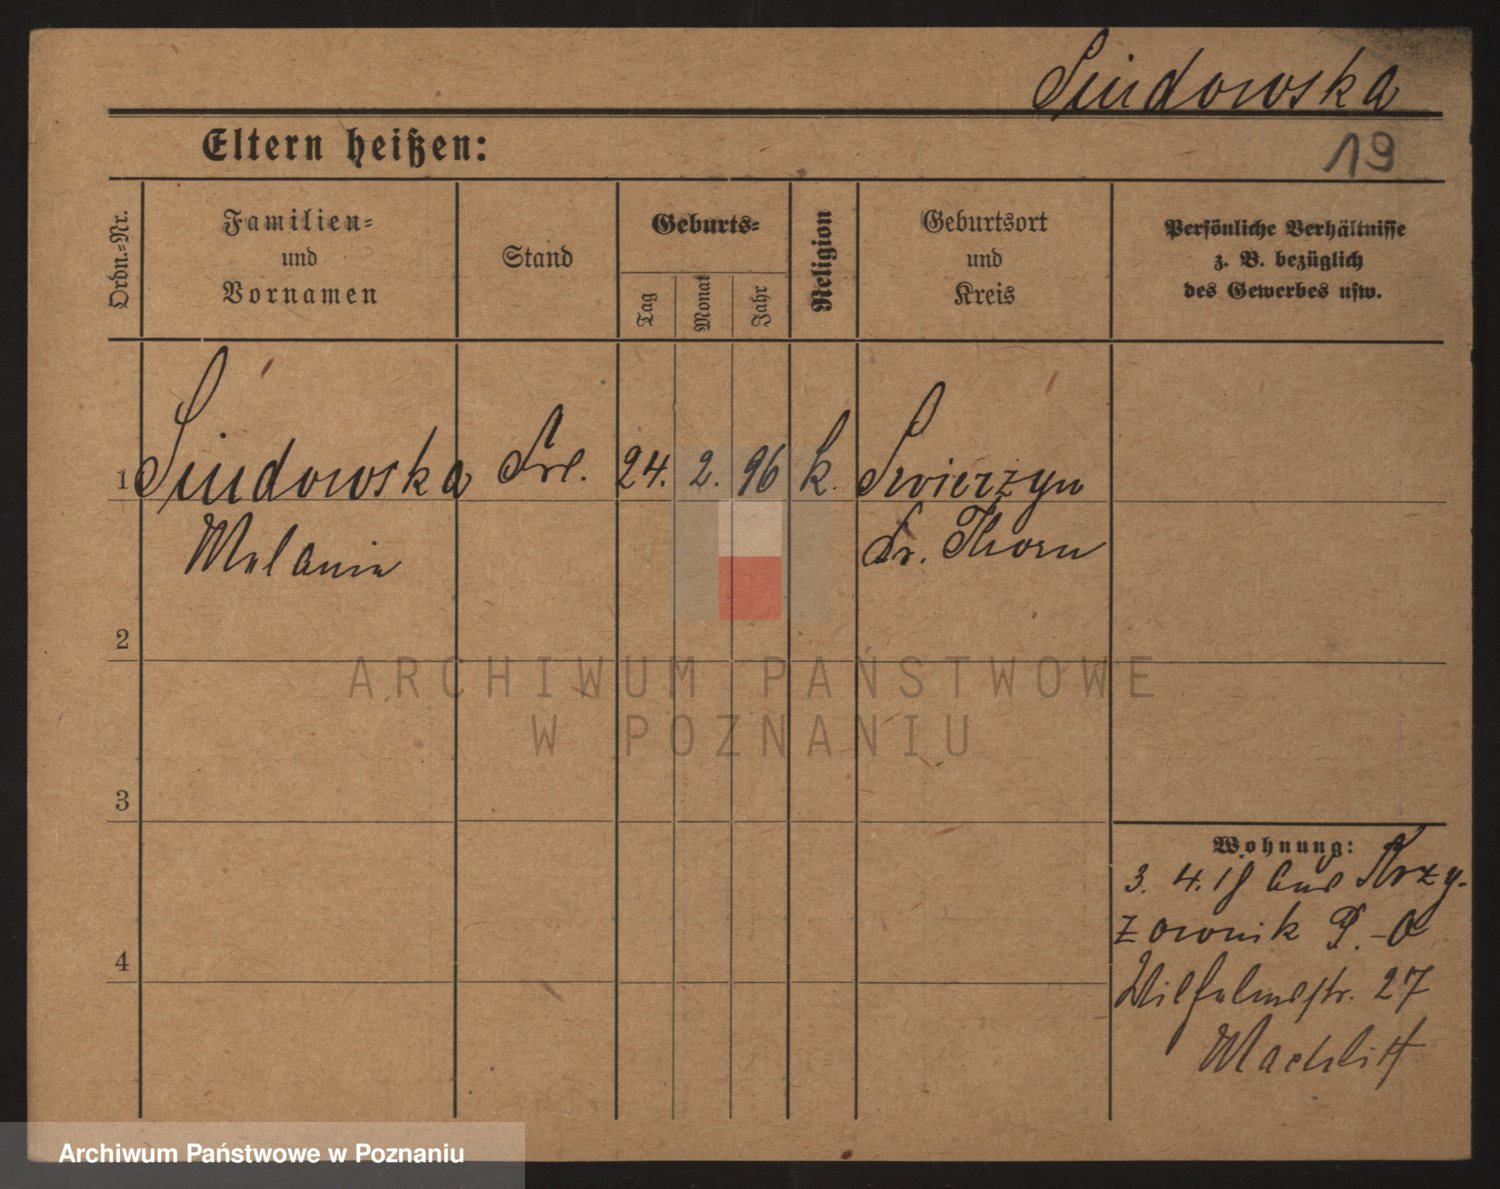 Sindowska
Eltern heißen:
19
Ordn.-Nr.
Familien-
und
Vornamen
Stand
Geburts-
Tag
Monat
Jahr
Religion
Geburtsort
und
Kreis
Persönliche Verhältnisse
z. B. bezüglich
des Gewerbes usw.
1 Sindowska Frl. 24. 2. 96 k. Swierzyn
Melanie Kr. Thorn
2
ARCHIWUM PAŃSTWOWE
W POZNANIU
3
Wohnung:
3. 4. 18 aus Krzy-
żownik P.-O
4
Wilhelmstr. 27
Archiwum Państwowe w Poznaniu